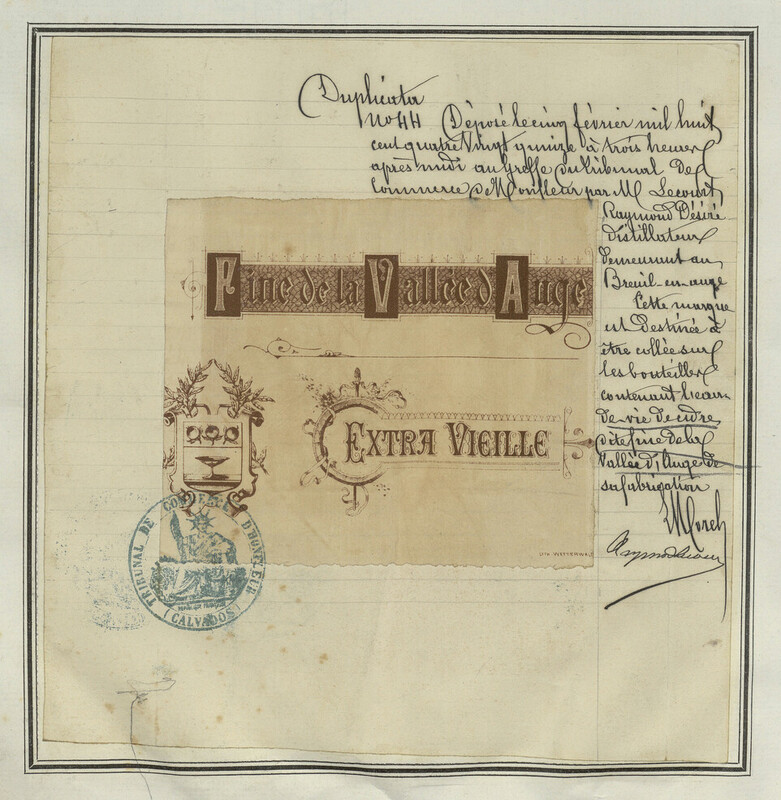 Duplicata
No 44 Déposé le cinq février mil huit
cent quatre vingt quinze à trois heures
après midi au Greffe du tribunal de
Commerce d'Honfleur par M. Lecourt
Raymond Désiré
distillateur
demeurant au
Breuil-en-auge
Cette marque
est destinée à
être collée sur
les bouteilles
contenant l'eau-
de-vie de cidre
dite fine de la
Vallée d'Auge de
sa fabrication
Fine de la Vallée d'Auge
EXTRA VIEILLE
TRIBUNAL DE COMMERCE D'HONFLEUR
(CALVADOS)